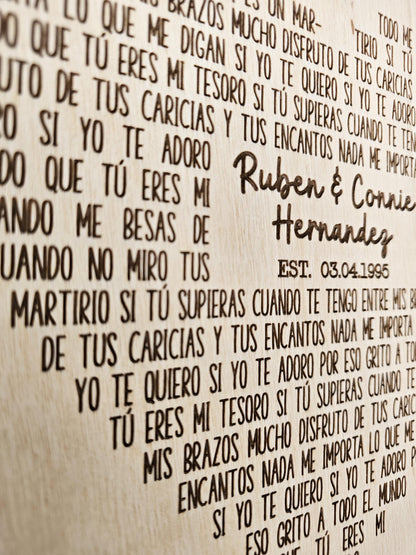 ES UN MAR-
TODO ME
LO QUE ME
MIS BRAZOS MUCHO DISFRUTO DE TUS CARICIAS
TIRIO SI TÚ
QUE TÚ ERES MI TESORO SI TÚ SUPIERAS CUANDO TE
ME DIGAN SI YO TE QUIERO SI YO TE ADORO
DE TUS CARICIAS Y TUS ENCANTOS NADA ME IMPORTA
SI YO TE ADORO
QUE TÚ ERES MI
ME BESAS DE
CUANDO NO MIRO TUS
Ruben & Connie
Hernandez
EST. 03.04.1995
MARTIRIO SI TÚ SUPIERAS CUANDO TE TENGO ENTRE MIS
DE TUS CARICIAS Y TUS ENCANTOS NADA ME IMPORTA
YO TE QUIERO SI YO TE ADORO POR ESO GRITO A
TÚ ERES MI TESORO SI TÚ SUPIERAS CUANDO TE
MIS BRAZOS MUCHO DISFRUTO DE TUS
ENCANTOS NADA ME IMPORTA LO QUE ME
SI YO TE QUIERO SI YO TE ADORO
ESO GRITO A TODO EL MUNDO
QUE TÚ ERES MI